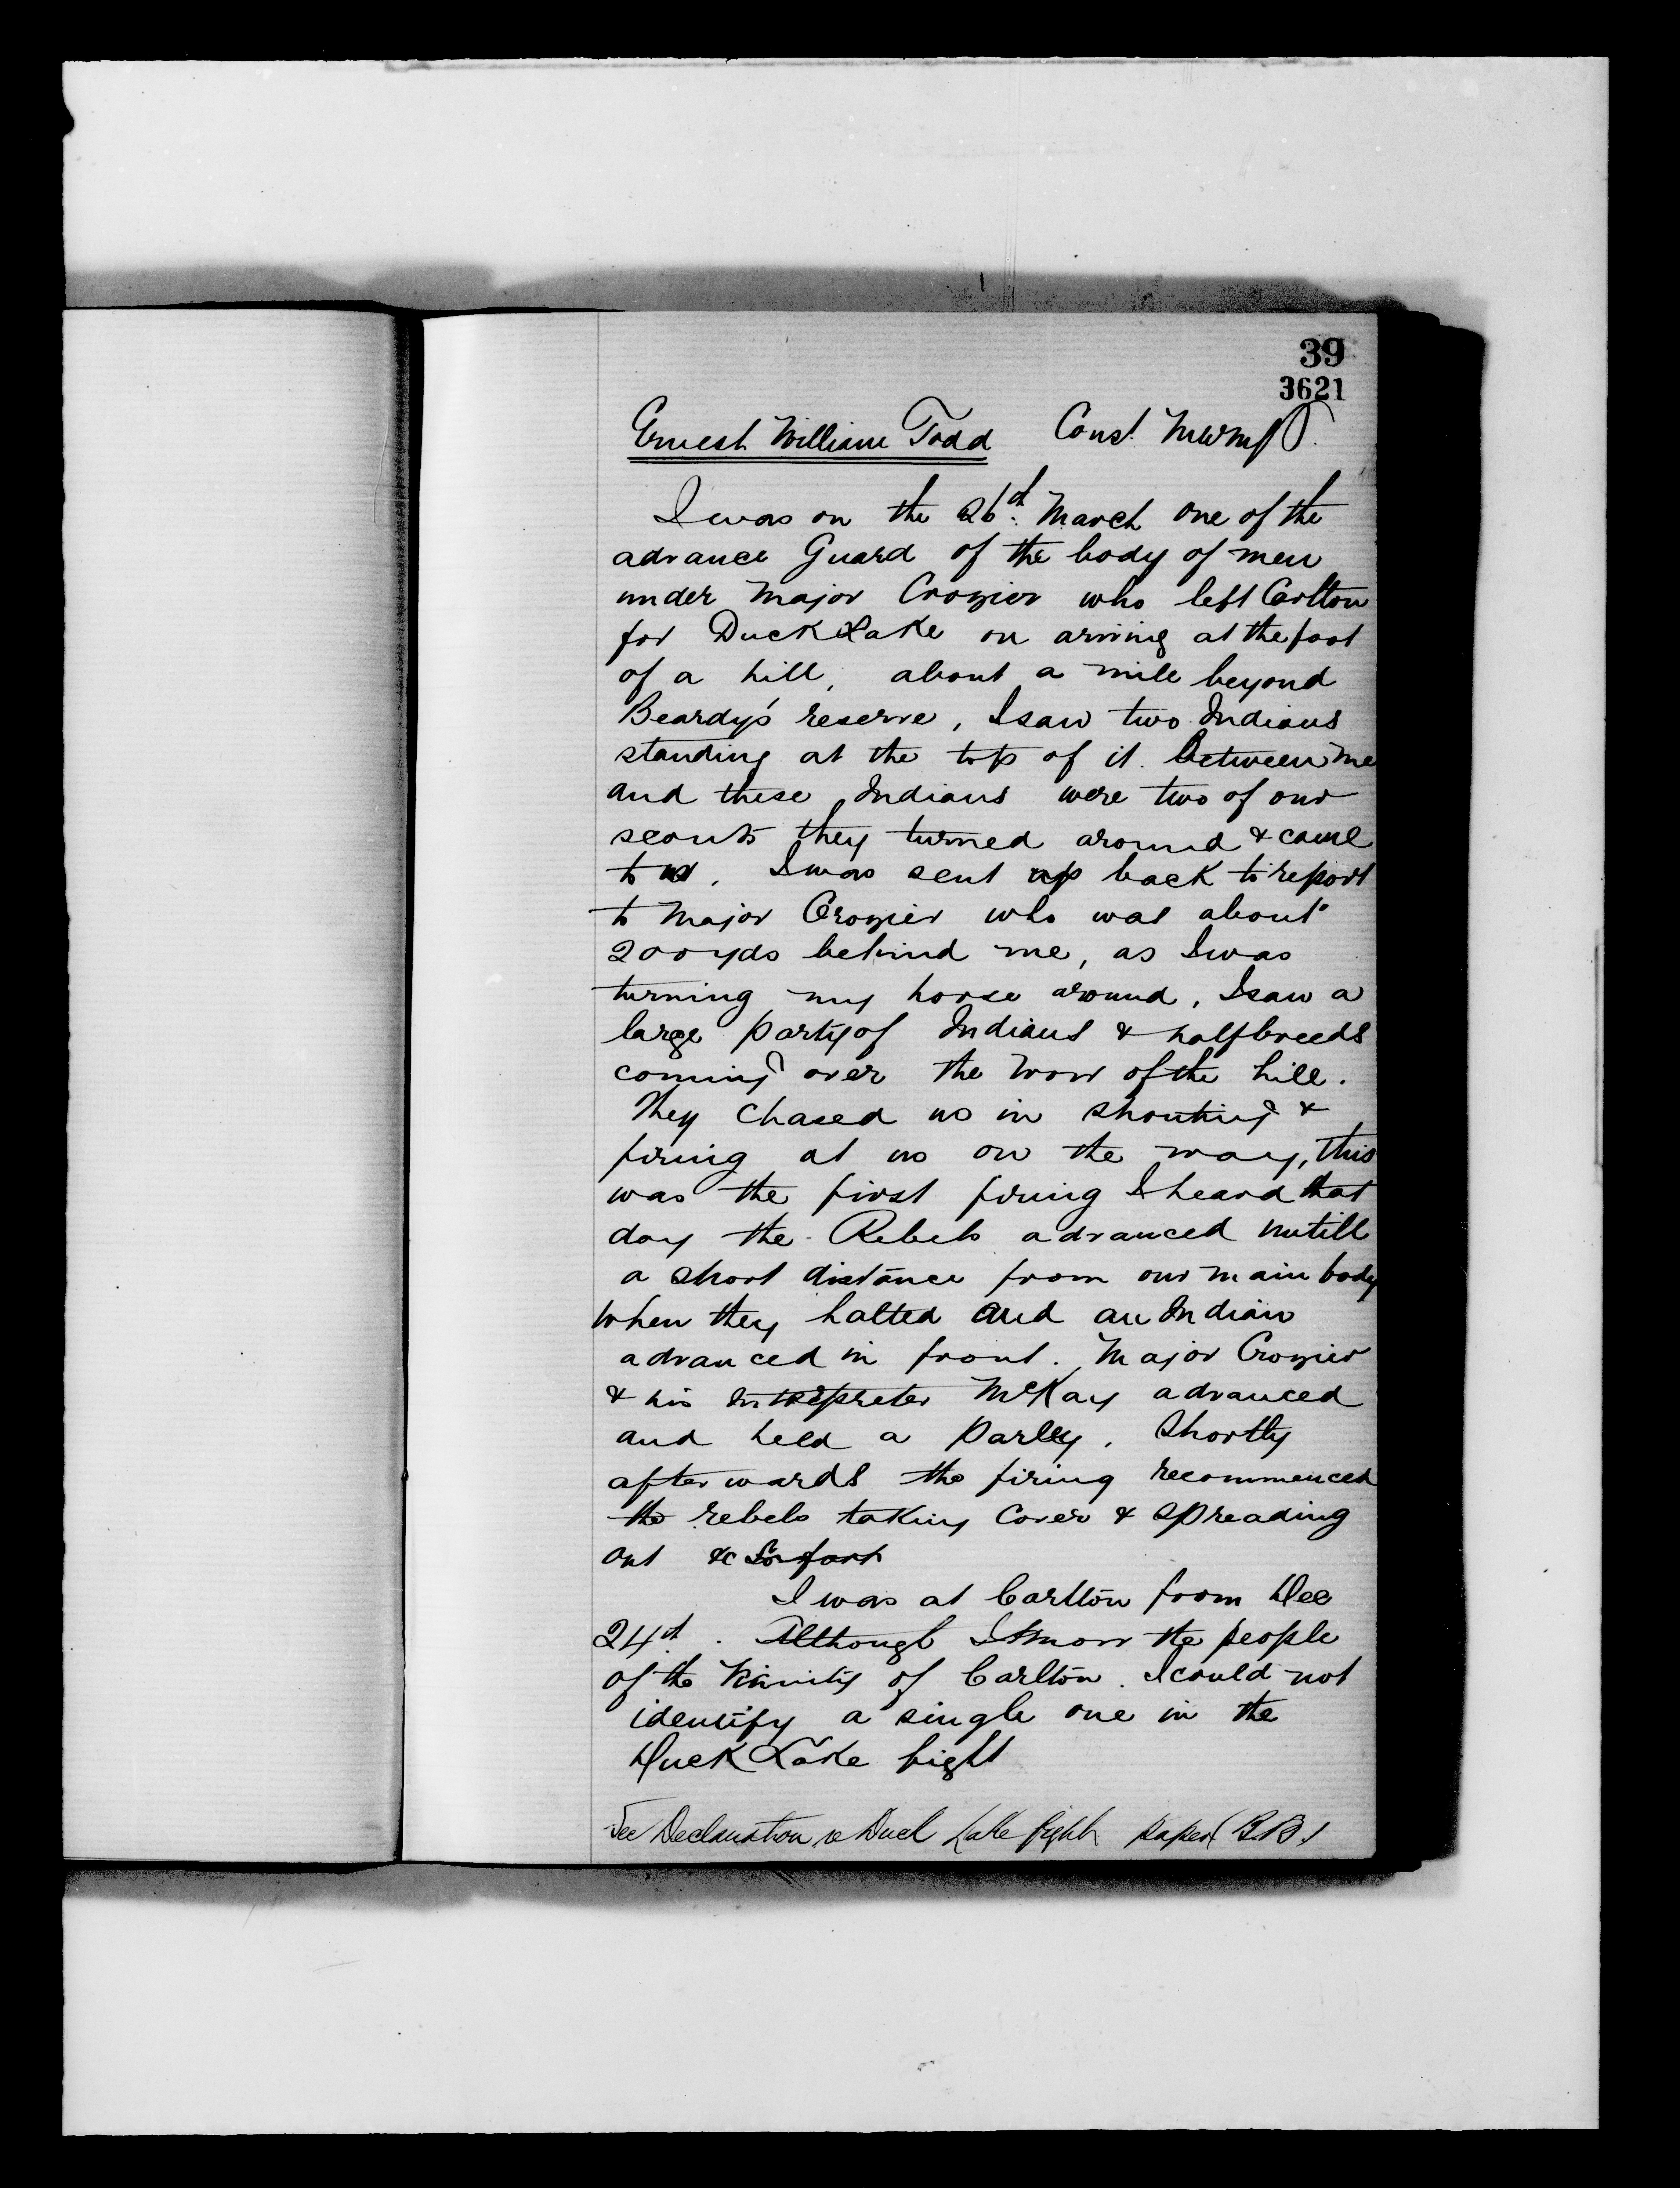 39
3621
Ernest William Todd Const. NWMP.
I was on the 26th March one of the
advance Guard of the body of men
under Major Crozier who left Carlton
for Duck Lake on arriving at the foot
of a hill, about a mile beyond
Beardy's reserve, I saw two Indians
standing at the top of it. Between me
and these Indians were two of our
scouts they turned around & came
to us. I was sent up back to report
to Major Crozier who was about
200 yds behind me, as I was
turning my horse around, I saw a
large party of Indians & halfbreeds
coming over the brow of the hill.
They chased us in shouting &
firing at us on the way, this
was the first firing I heard that
day the Rebels advanced untill
a short distance from our main body
when they halted and an Indian
advanced in front. Major Crozier
& his Interpreter McKay advanced
and held a parley. Shortly
afterwards the firing recommenced
the rebels taking cover & spreading
out &c So forth
I was at Carlton from Dec
24th. Although I know the people
of the vicinity of Carlton. I could not
identify a single one in the
Duck Lake fight
See Declaration re Duck Lake fight paper (B.B.)